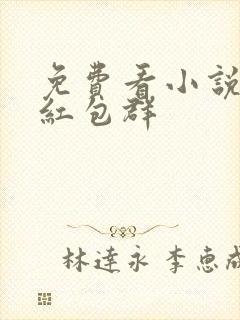 免費看小説
紅包群
林達永 李惠成